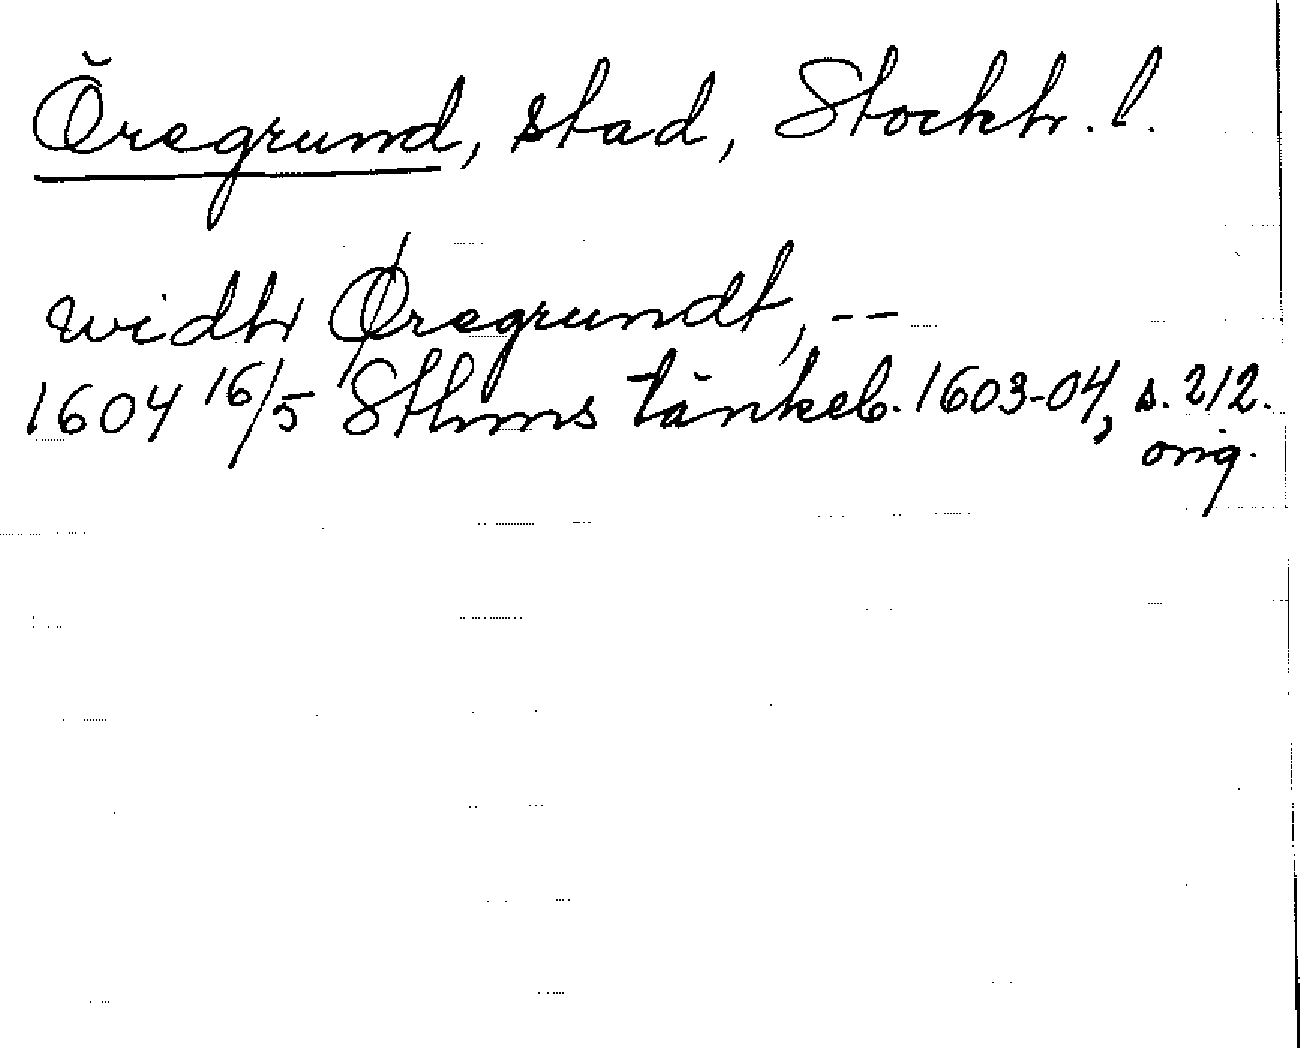 Öregrund, stad, Stockh. l.
widh Øregrundt, --
1604 16/5 Sthms tänkeb. 1603-04, s. 212.
orig.